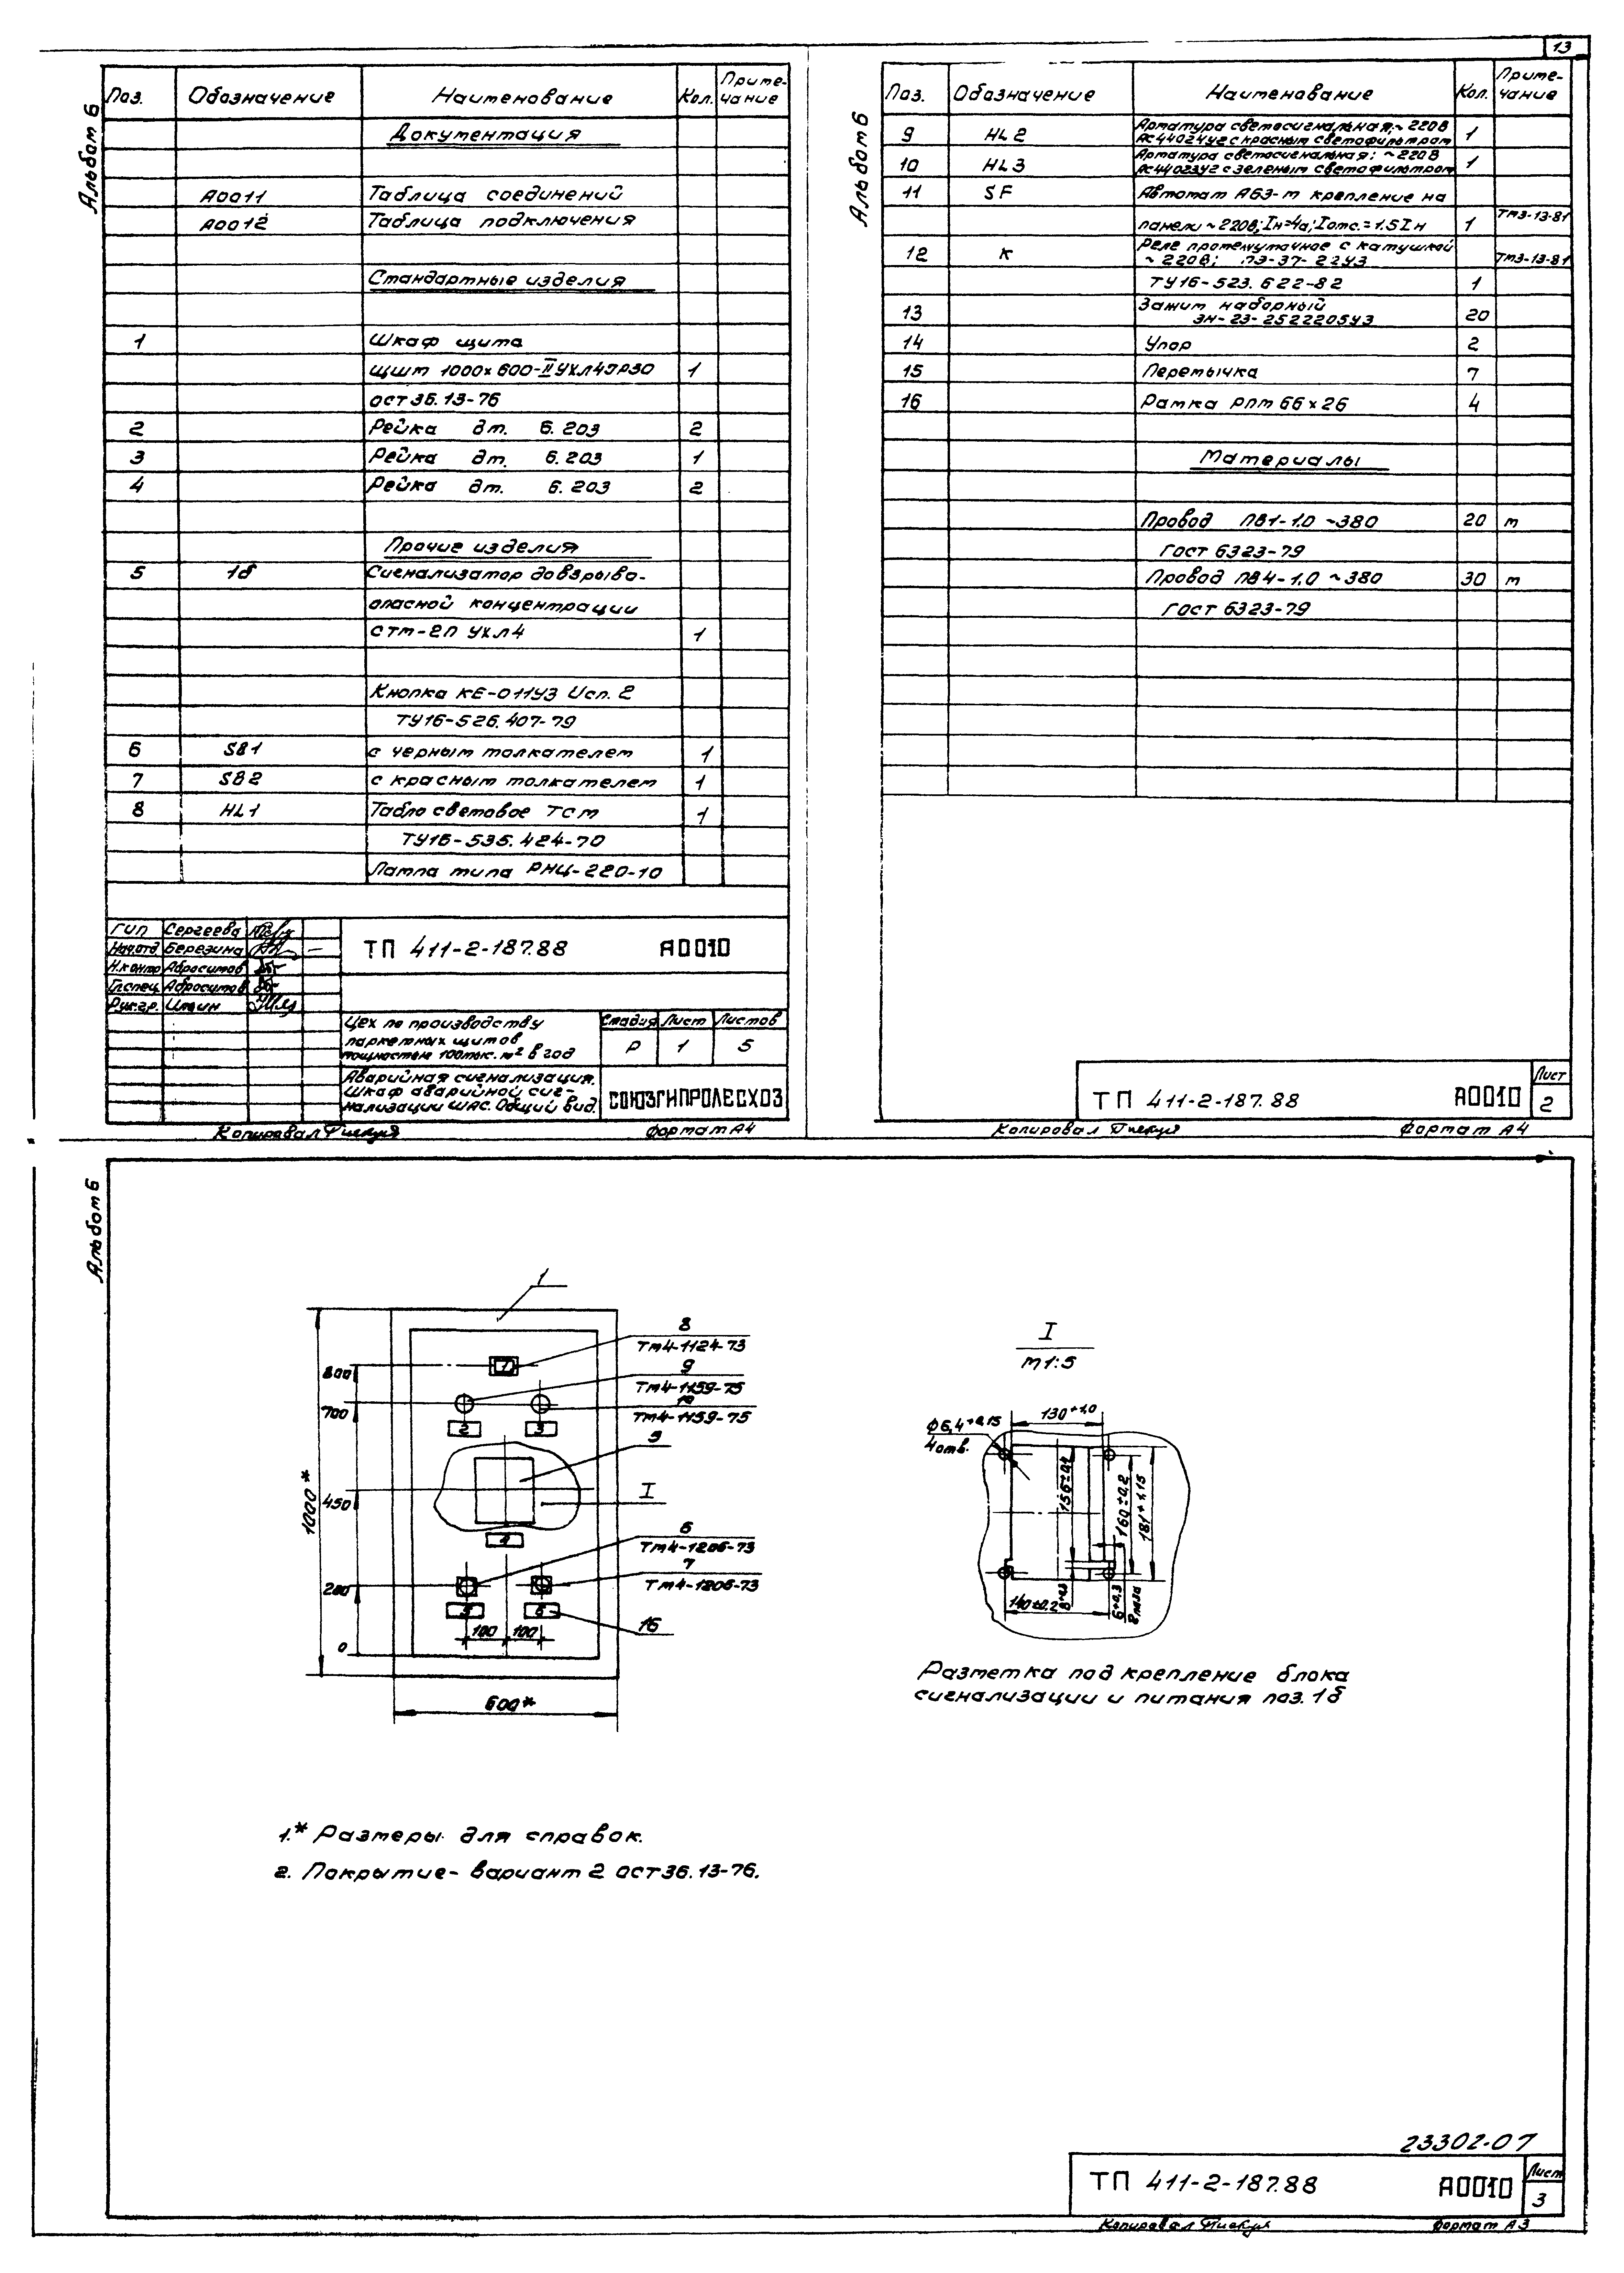 13
Альбом 6
Поз. Обозначение Наименование Кол. Приме-
чание
Документация
А0011 Таблица соединений
А0012 Таблица подключения
Стандартные изделия
1 Шкаф щита
ЩШМ 1000х600-II УХЛ4 IP30 1
ОСТ 36.13-76
2 Рейка дм. 6.203 2
3 Рейка дм. 6.203 1
4 Рейка дм. 6.203 2
Прочие изделия
5 1б Сигнализатор довзрыво-
опасной концентрации
СТМ-2П УХЛ4 1
Кнопка КЕ-011У3 Исп. 2
ТУ16-526.407-79
6 SB1 с черным толкателем 1
7 SB2 с красным толкателем 1
8 HL1 Табло световое ТСМ 1
ТУ16-535.424-70
Лампа типа РНЦ-220-10
ГИП Сергеева
Нач.отд. Березина
Н.контр Абросимов
Гл.спец. Абросимов
Рук.гр. Ильин
ТП 411-2-187.88 А0010
Цех по производству
паркетных щитов
мощностью 100тыс. м² в год
Стадия Лист Листов
Р 1 5
Аварийная сигнализация.
Шкаф аварийной сиг-
нализации ШАС. Общий вид
СОЮЗГИПРОЛЕСХОЗ
Копировал Формат А4
Альбом 6
Поз. Обозначение Наименование Кол. Приме-
чание
9 HL2 Арматура светосигнальная; ~220В
АС44024У2 с красным светофильтром 1
10 HL3 Арматура светосигнальная: ~220В
АС44023У2 с зеленым светофильтром 1
11 SF Автомат А63-м крепление на
панели ~220В; Iн=4а; Iотс.=1.5Iн 1 ТМ3-13-81
12 К Реле промежуточное с катушкой
~220В; ПЭ-37-22У3 ТМ3-13-81
ТУ16-523.622-82 1
13 Зажим наборный
ЗН-23-252220543 20
14 Упор 2
15 Перемычка 7
16 Рамка РПМ 66х26 4
Материалы
Провод ПВ1-1.0 ~380 20 м
Гост 6323-79
Провод ПВ4-1.0 ~380 30 м
Гост 6323-79
ТП 411-2-187.88 А0010 Лист
2
Копировал Формат А4
Альбом 6
1
8
ТМ4-1124-73
9
ТМ4-1159-75
10
ТМ4-1159-75
5
I
6
ТМ4-1206-73
7
ТМ4-1206-73
16
1
2 3
4
5 6
800
700
450
200
0
1000*
100 100
600*
I
М1:5
130+1,0
Ф6,4+0,15
4отв.
156±0,2
160±0,2
181+1,15
140±0,2
8+0,3
6+0,3
2 паза
Разметка под крепление блока
сигнализации и питания поз. 1б
1.* Размеры для справок.
2. Покрытие- вариант 2 ОСТ36.13-76.
23302-07
ТП 411-2-187.88 А0010 Лист
3
Копировал Формат А3